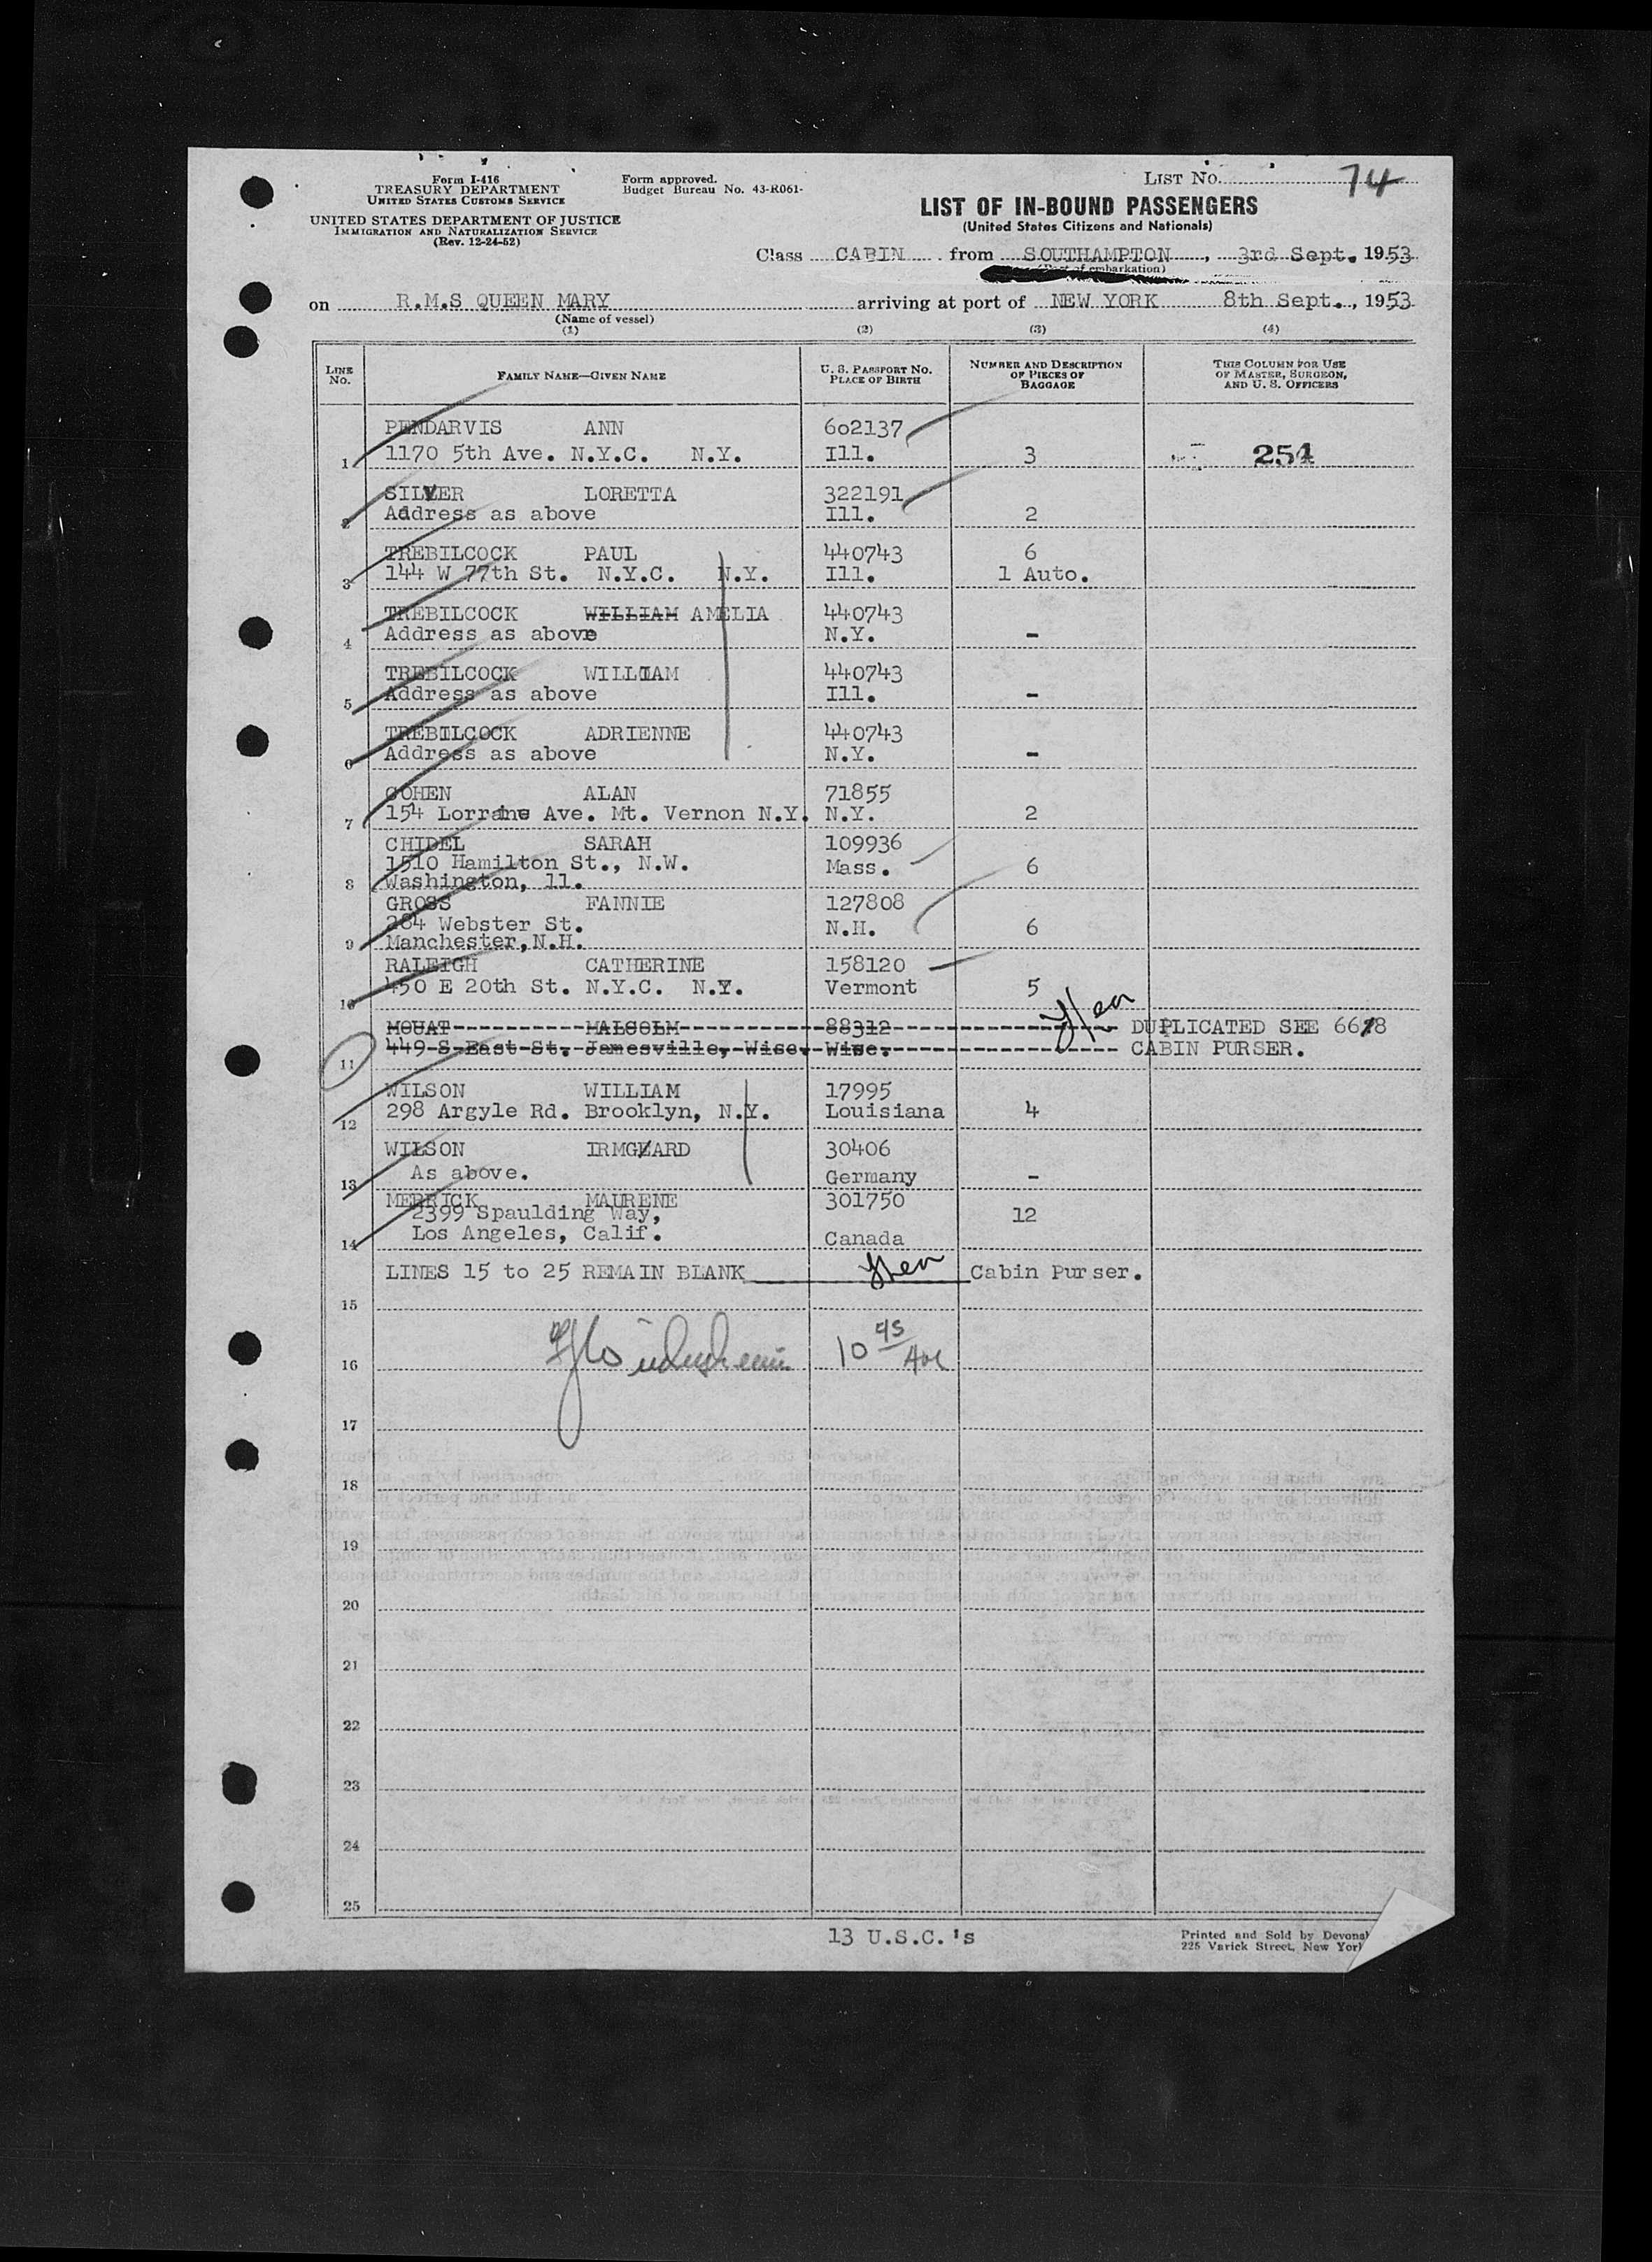 Form I-416
TREASURY DEPARTMENT
UNITED STATES CUSTOMS SERVICE
UNITED STATES DEPARTMENT OF JUSTICE
IMMIGRATION AND NATURALIZATION SERVICE
(Rev. 12-24-52)
Form approved.
Budget Bureau No. 43-R061-
LIST NO. 74
LIST OF IN-BOUND PASSENGERS
(United States Citizens and Nationals)
Class CABIN from SOUTHAMPTON, 3rd Sept. 1953
(Port of embarkation)
on R.M.S QUEEN MARY arriving at port of NEW YORK 8th Sept., 1953
(Name of vessel)
(1) (2) (3) (4)
LINE No. FAMILY NAME—GIVEN NAME U. S. PASSPORT NO. PLACE OF BIRTH NUMBER AND DESCRIPTION OF PIECES OF BAGGAGE THIS COLUMN FOR USE OF MASTER, SURGEON, AND U. S. OFFICERS
PENDARVIS ANN 602137
1 1170 5th Ave. N.Y.C. N.Y. Ill. 3 254
SILVER LORETTA 322191
2 Address as above Ill. 2
TREBILCOCK PAUL 440743 6
3 144 W 77th St. N.Y.C. N.Y. Ill. 1 Auto.
TREBILCOCK WILLIAM AMELIA 440743
4 Address as above N.Y. -
TREBILCOCK WILLIAM 440743
5 Address as above Ill. -
TREBILCOCK ADRIENNE 440743
6 Address as above N.Y. -
COHEN ALAN 71855
7 154 Lorraine Ave. Mt. Vernon N.Y. N.Y. 2
CHIDEL SARAH 109936
1510 Hamilton St., N.W. Mass. 6
8 Washington, 11.
GROSS FANNIE 127808
284 Webster St. N.H. 6
9 Manchester, N.H.
RALEIGH CATHERINE 158120
10 450 E 20th St. N.Y.C. N.Y. Vermont 5
MOUAT MALCOLM 88312 DUPLICATED SEE 6678
11 449 S East St. Jamesville, Wisc. Wisc. CABIN PURSER.
WILSON WILLIAM 17995
12 298 Argyle Rd. Brooklyn, N.Y. Louisiana 4
WILSON IRMGARD 30406
13 As above. Germany -
MERRICK MAURENE 301750
2399 Spaulding Way, 12
14 Los Angeles, Calif. Canada
LINES 15 to 25 REMAIN BLANK Cabin Purser.
15
16 10 45
17
18
19
20
21
22
23
24
25
13 U.S.C.'s
Printed and Sold by
225 Varick Street, New